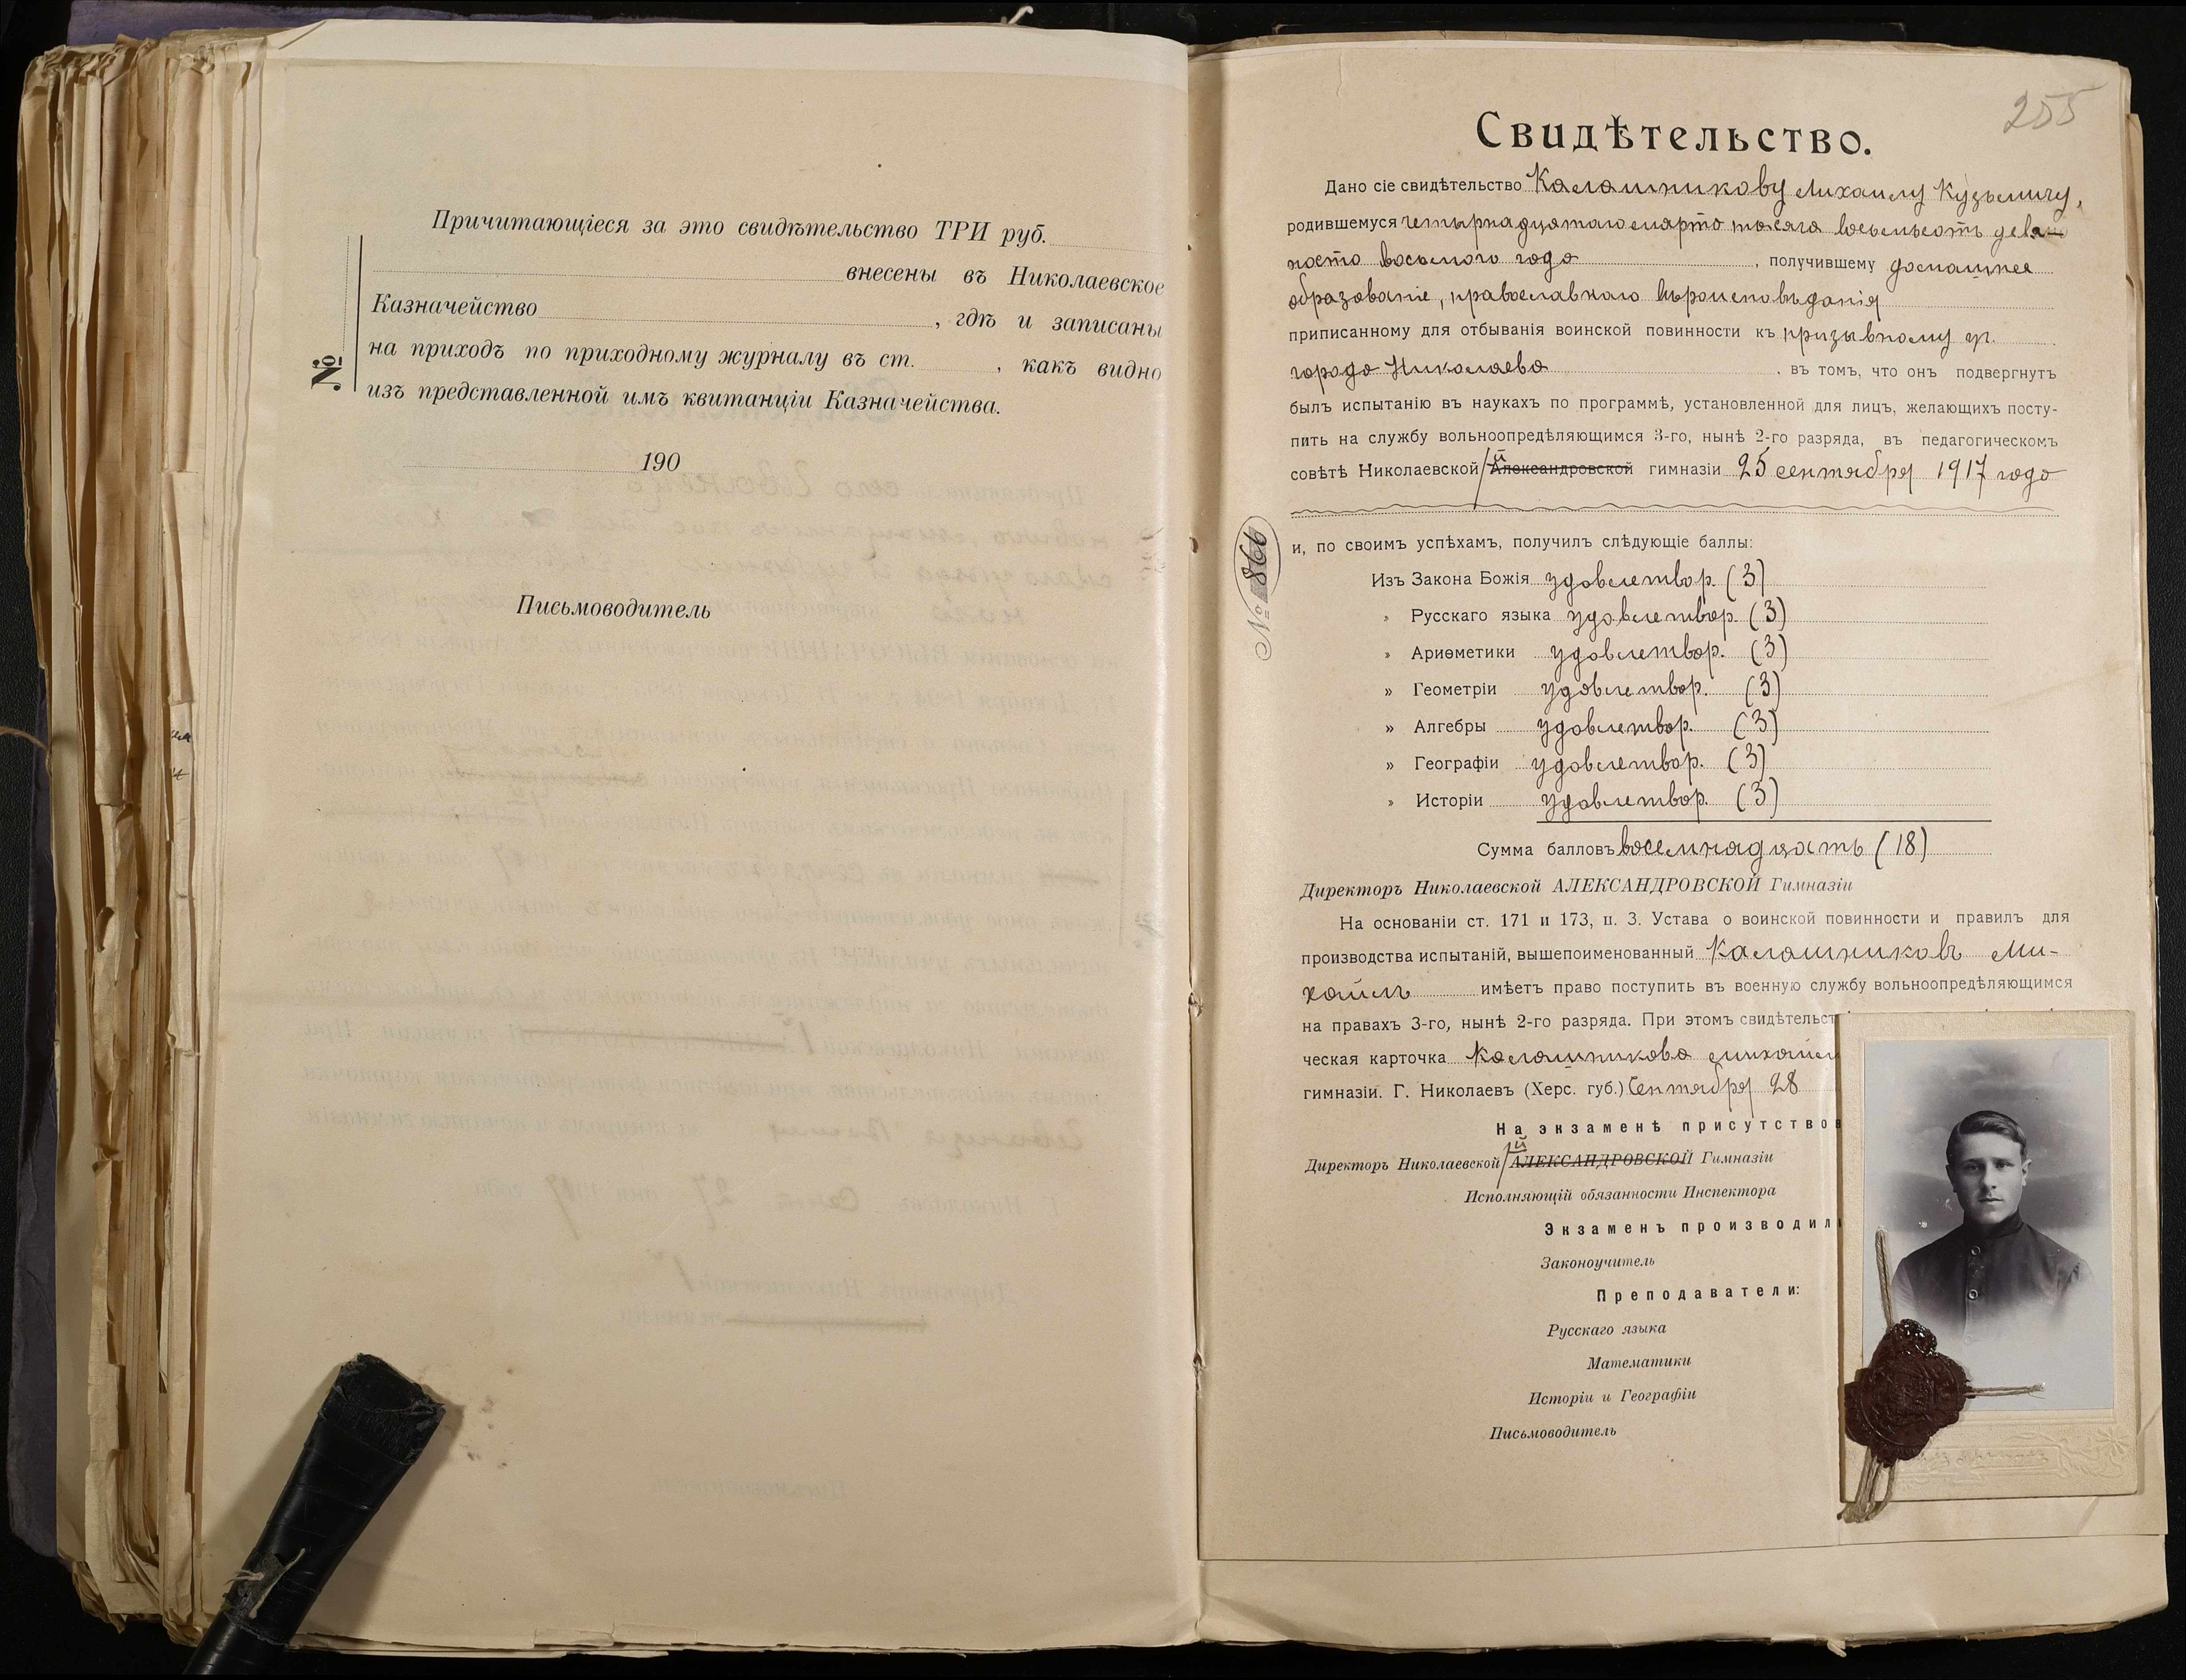 Причитающіеся за это свидѣтельство ТРИ руб.
внесены въ Николаевское
Казначейство , гдѣ и записаны
на приходъ по приходному журналу въ ст. , какъ видно
изъ представленной имъ квитанціи Казначейства.
№
190
Письмоводитель
255
Свидѣтельство.
Дано сіе свидѣтельство Калашникову Михаилу Кузьмичу,
родившемуся четырнадцатаго марта тысяча восемьсотъ девя-
носто восьмого года , получившему домашнее
образованіе, православнаго вѣроисповѣданія
приписанному для отбыванія воинской повинности къ призывному уч.
города Николаева , въ томъ, что онъ подвергнутъ
былъ испытанію въ наукахъ по программѣ, установленной для лицъ, желающихъ посту-
пить на службу вольноопредѣляющимся 3-го, нынѣ 2-го разряда, въ педагогическомъ
совѣтѣ Николаевской 1й Александровской гимназіи 25 сентября 1917 года
№ 866
и, по своимъ успѣхамъ, получилъ слѣдующіе баллы:
Изъ Закона Божія удовлетвор. (3)
„ Русскаго языка удовлетвор. (3)
„ Ариѳметики удовлетвор. (3)
„ Геометріи удовлетвор. (3)
„ Алгебры удовлетвор. (3)
„ Географіи удовлетвор. (3)
„ Исторіи удовлетвор. (3)
Сумма балловъ восемнадцать (18)
Директоръ Николаевской АЛЕКСАНДРОВСКОЙ Гимназіи
На основаніи ст. 171 и 173, п. 3. Устава о воинской повинности и правилъ для
производства испытаній, вышепоименованный Калашниковъ Ми-
хаилъ имѣетъ право поступить въ военную службу вольноопредѣляющимся
на правахъ 3-го, нынѣ 2-го разряда. При этомъ свидѣтельст
ческая карточка Калашникова Михаил
гимназіи. Г. Николаевъ (Херс. губ.) Сентября 28
На экзаменѣ присутствов
Директоръ Николаевской 1й АЛЕКСАНДРОВСКОЙ Гимназіи
Исполняющій обязанности Инспектора
Экзаменъ производили
Законоучитель
Преподаватели:
Русскаго языка
Математики
Исторіи и Географіи
Письмоводитель